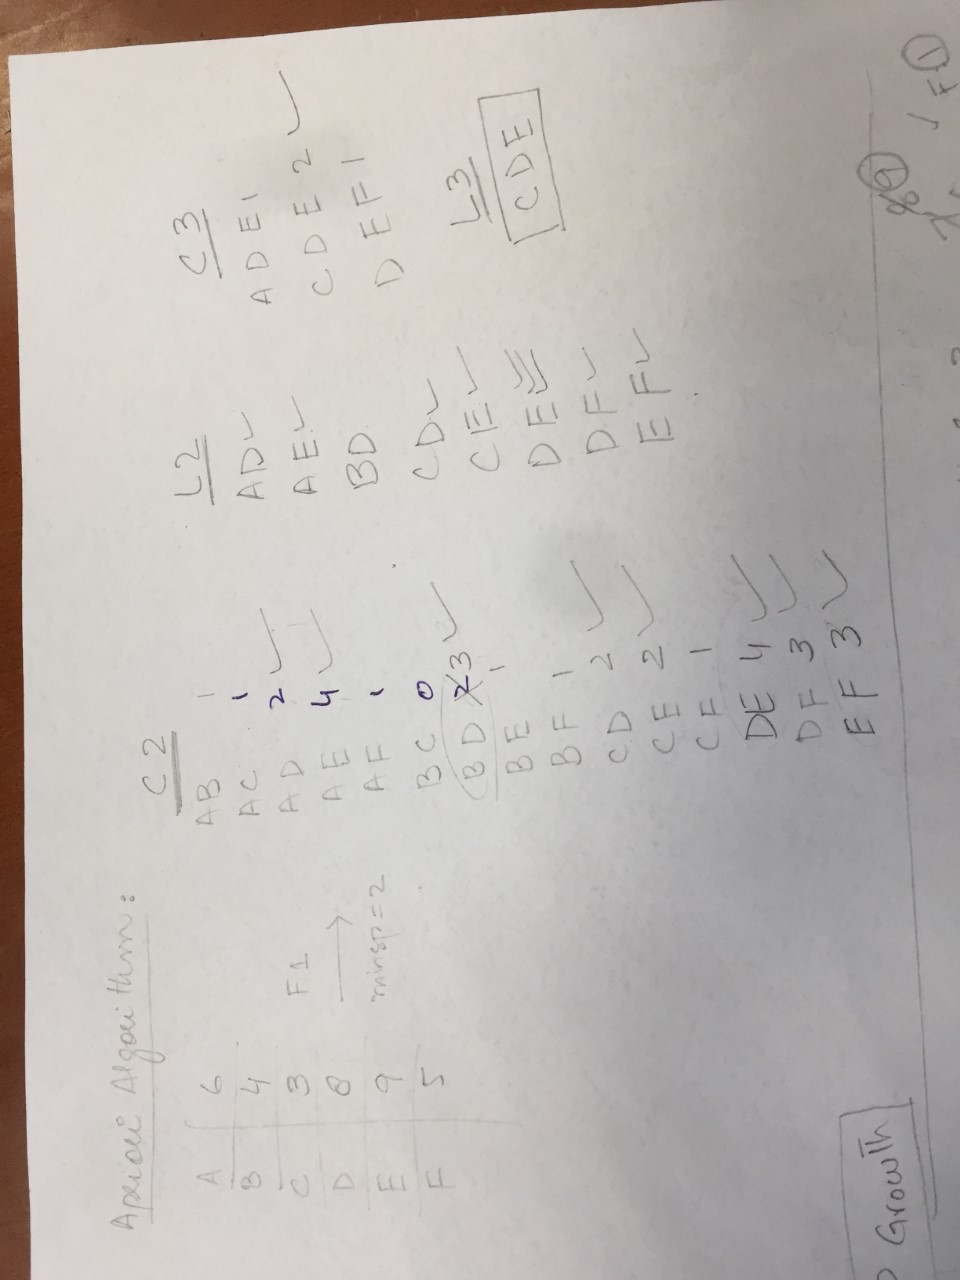 Apriori Algorithm:
A 6
B 4
C 3
D 8
E 9
F 5
F1
minsp=2
C2
AB 1
AC 1
AD 2 ✓
AE 4 ✓
AF 1
BC 0
BD 3 ✓
BE 1
BF 1
CD 2 ✓
CE 2 ✓
CF 1
DE 4 ✓
DF 3 ✓
EF 3 ✓
L2
AD ✓
AE ✓
BD
CD ✓
CE ✓
DE ✓✓
DF ✓
EF ✓
C3
ADE 1
CDE 2 ✓
DEF 1
L3
CDE
Growth